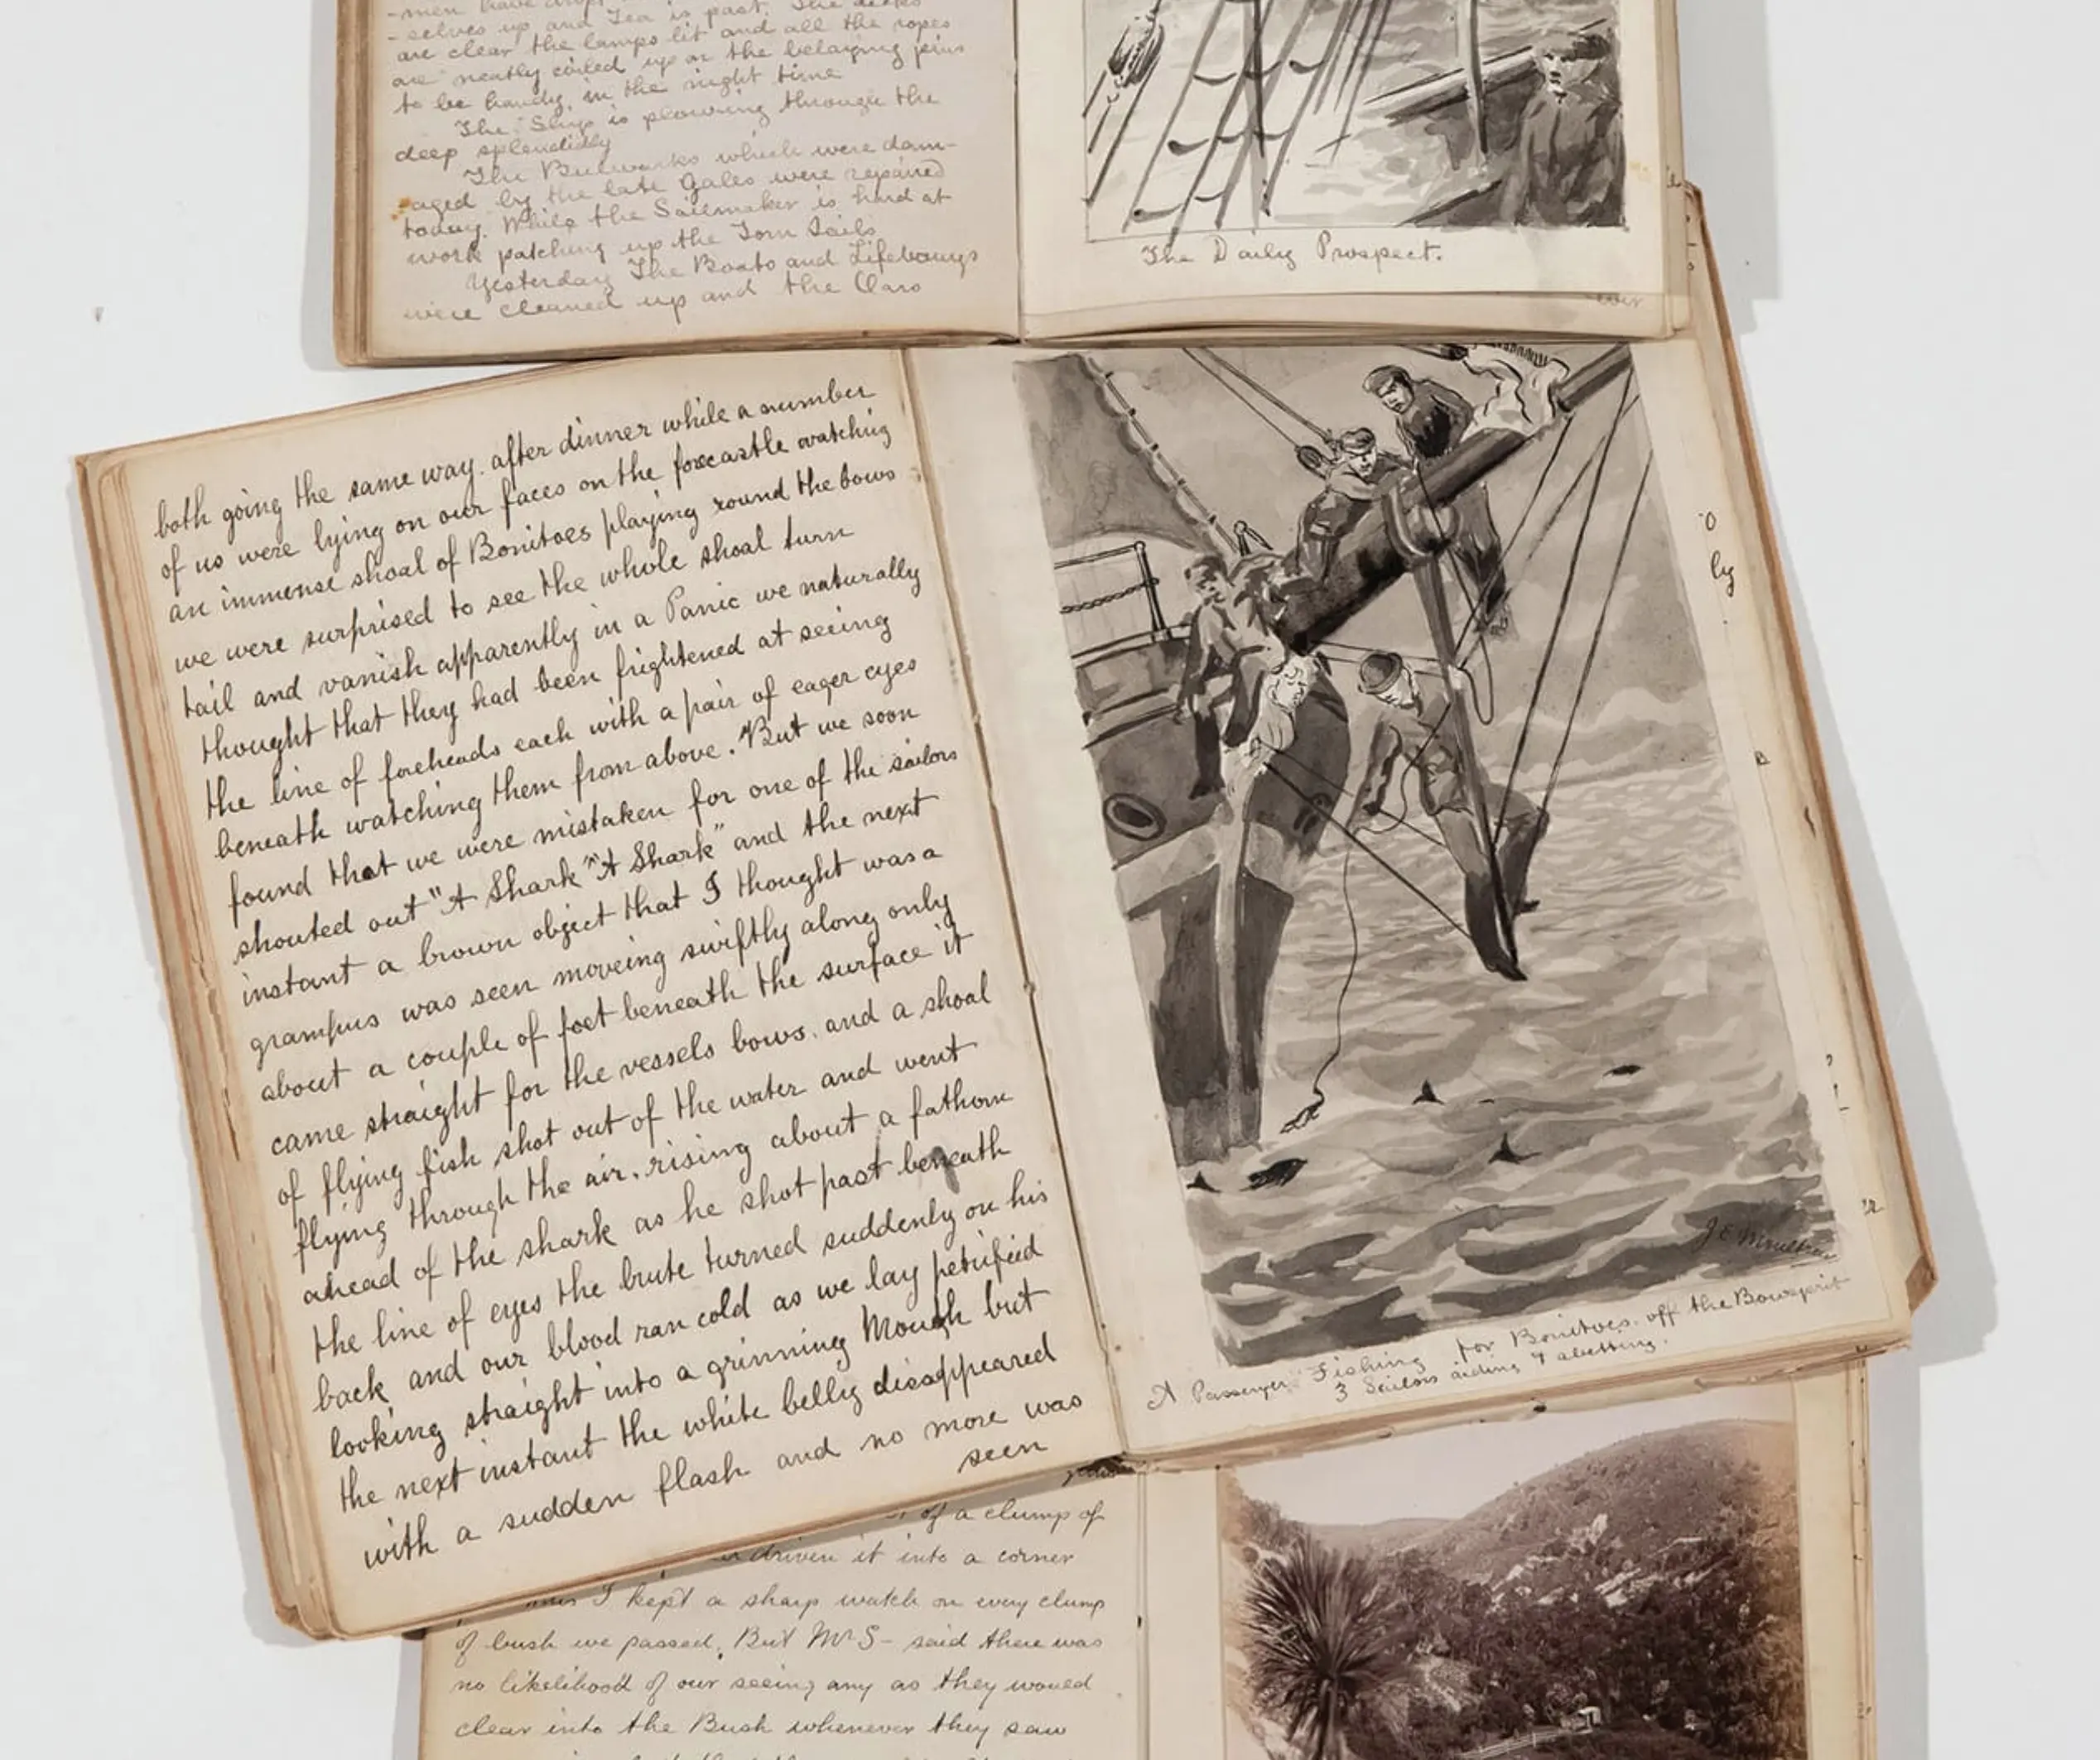 -men have
-selves up and Tea is past. The decks
are clear the lamps lit and all the ropes
are neatly coiled up on the belaying pins
to be handy, in the night time
The Ship is plowing through the
deep splendidly
The Bulwarks which were dam-
-aged by the late Gales were repaired
today. While the Sailmaker is hard at
work patching up the Torn Sails
Yesterday The Boats and Lifebouys
were cleaned up and the Oars
The Daily Prospect.
both going the same way. after dinner while a number
of us were lying on our faces on the foxcastle watching
an immense shoal of Bonitoes playing round the bows
we were surprised to see the whole shoal turn
tail and vanish apparently in a Panic we naturally
thought that they had been frightened at seeing
the line of foreheads each with a pair of eager eyes
beneath watching them from above. But we soon
found that we were mistaken for one of the sailors
shouted out "A Shark "A Shark" and the next
instant a brown object that I thought was a
grampus was seen moveing swiftly along only
about a couple of feet beneath the surface it
came straight for the vessels bows. and a shoal
of flying fish shot out of the water and went
flying through the air. rising about a fathom
ahead of the shark as he shot past beneath
the line of eyes the brute turned suddenly on his
back and our blood ran cold as we lay petrified
looking straight into a grinning Mough but
the next instant the white belly disappeared
with a sudden flash and no more was
seen
ly
J E Moultray
A Passenger Fishing for Bonitoes. off the Bowsprit
3 Sailors aiding & abetting.
of a clump of
driven it into a corner
I kept a sharp watch on every clump
of bush we passed. But Mr S- said there was
no likelihood of our seeing any as they would
clear into the Bush whenever they saw